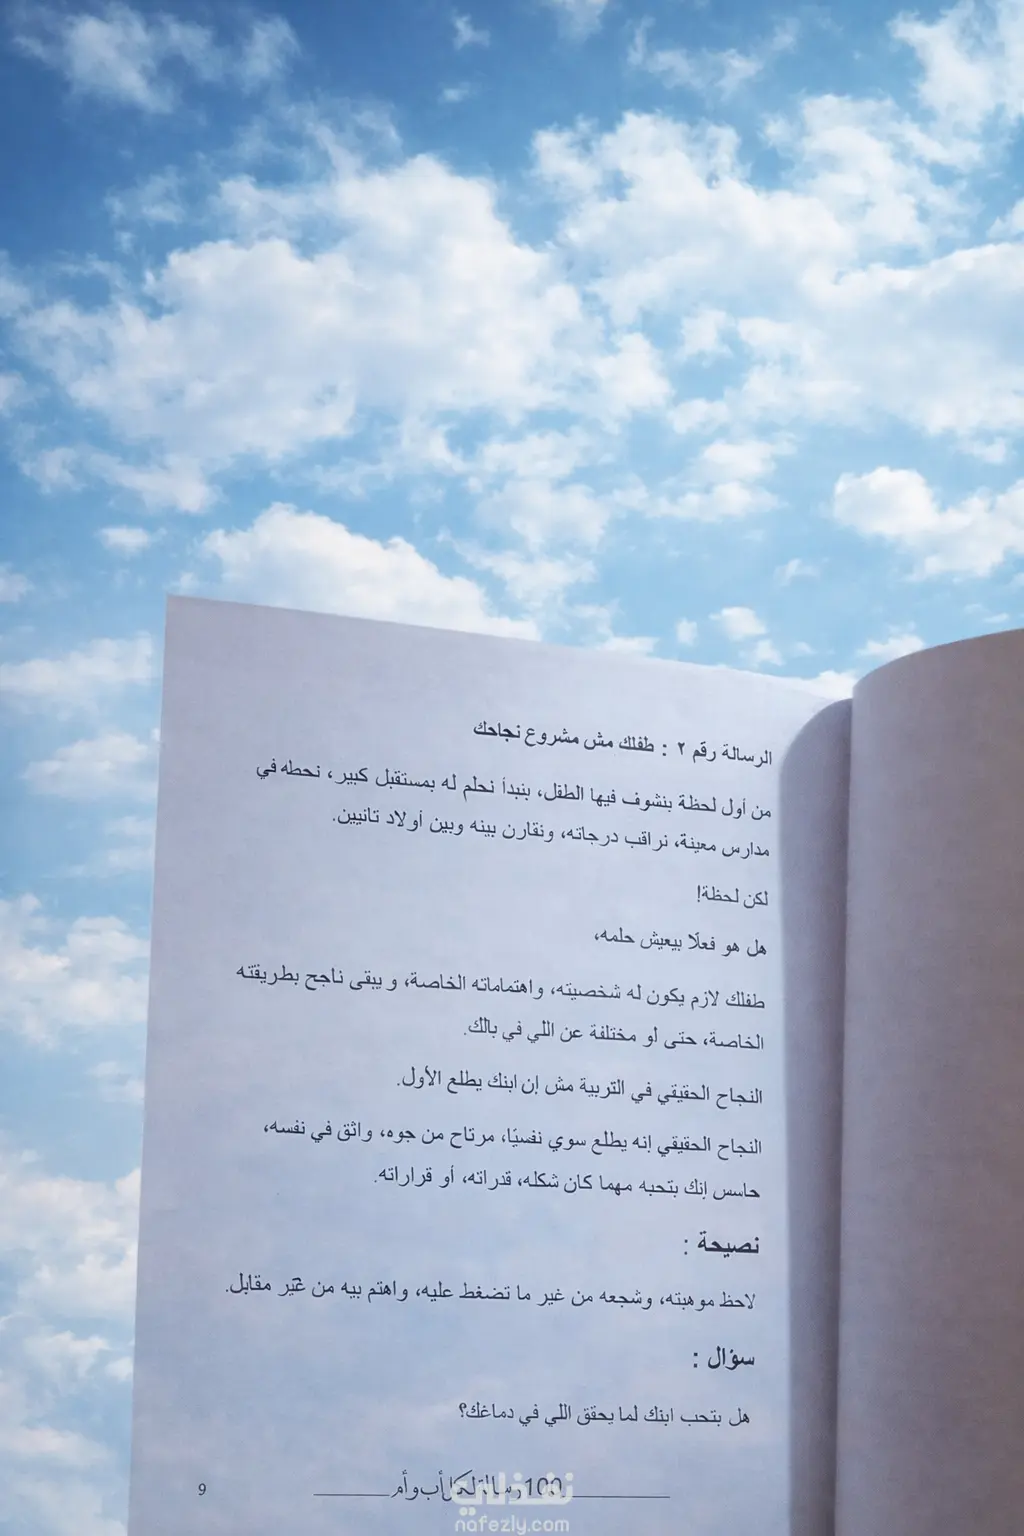 الرسالة رقم ٢ : طفلك مش مشروع نجاحك
من أول لحظة بنشوف فيها الطفل، بنبدأ نحلم له بمستقبل كبير، نحطه في
مدارس معينة، نراقب درجاته، ونقارن بينه وبين أولاد تانيين.
لكن لحظة!
هل هو فعلًا بيعيش حلمه،
طفلك لازم يكون له شخصيته، واهتماماته الخاصة، و يبقى ناجح بطريقته
الخاصة، حتى لو مختلفة عن اللي في بالك.
النجاح الحقيقي في التربية مش إن ابنك يطلع الأول.
النجاح الحقيقي إنه يطلع سوي نفسيًا، مرتاح من جوه، واثق في نفسه،
حاسس إنك بتحبه مهما كان شكله، قدراته، أو قراراته.
نصيحة :
لاحظ موهبته، وشجعه من غير ما تضغط عليه، واهتم بيه من غير مقابل.
سؤال :
هل بتحب ابنك لما يحقق اللي في دماغك؟
100 رسالة لكل أب و أم
9
نفذلي
nafezly.com